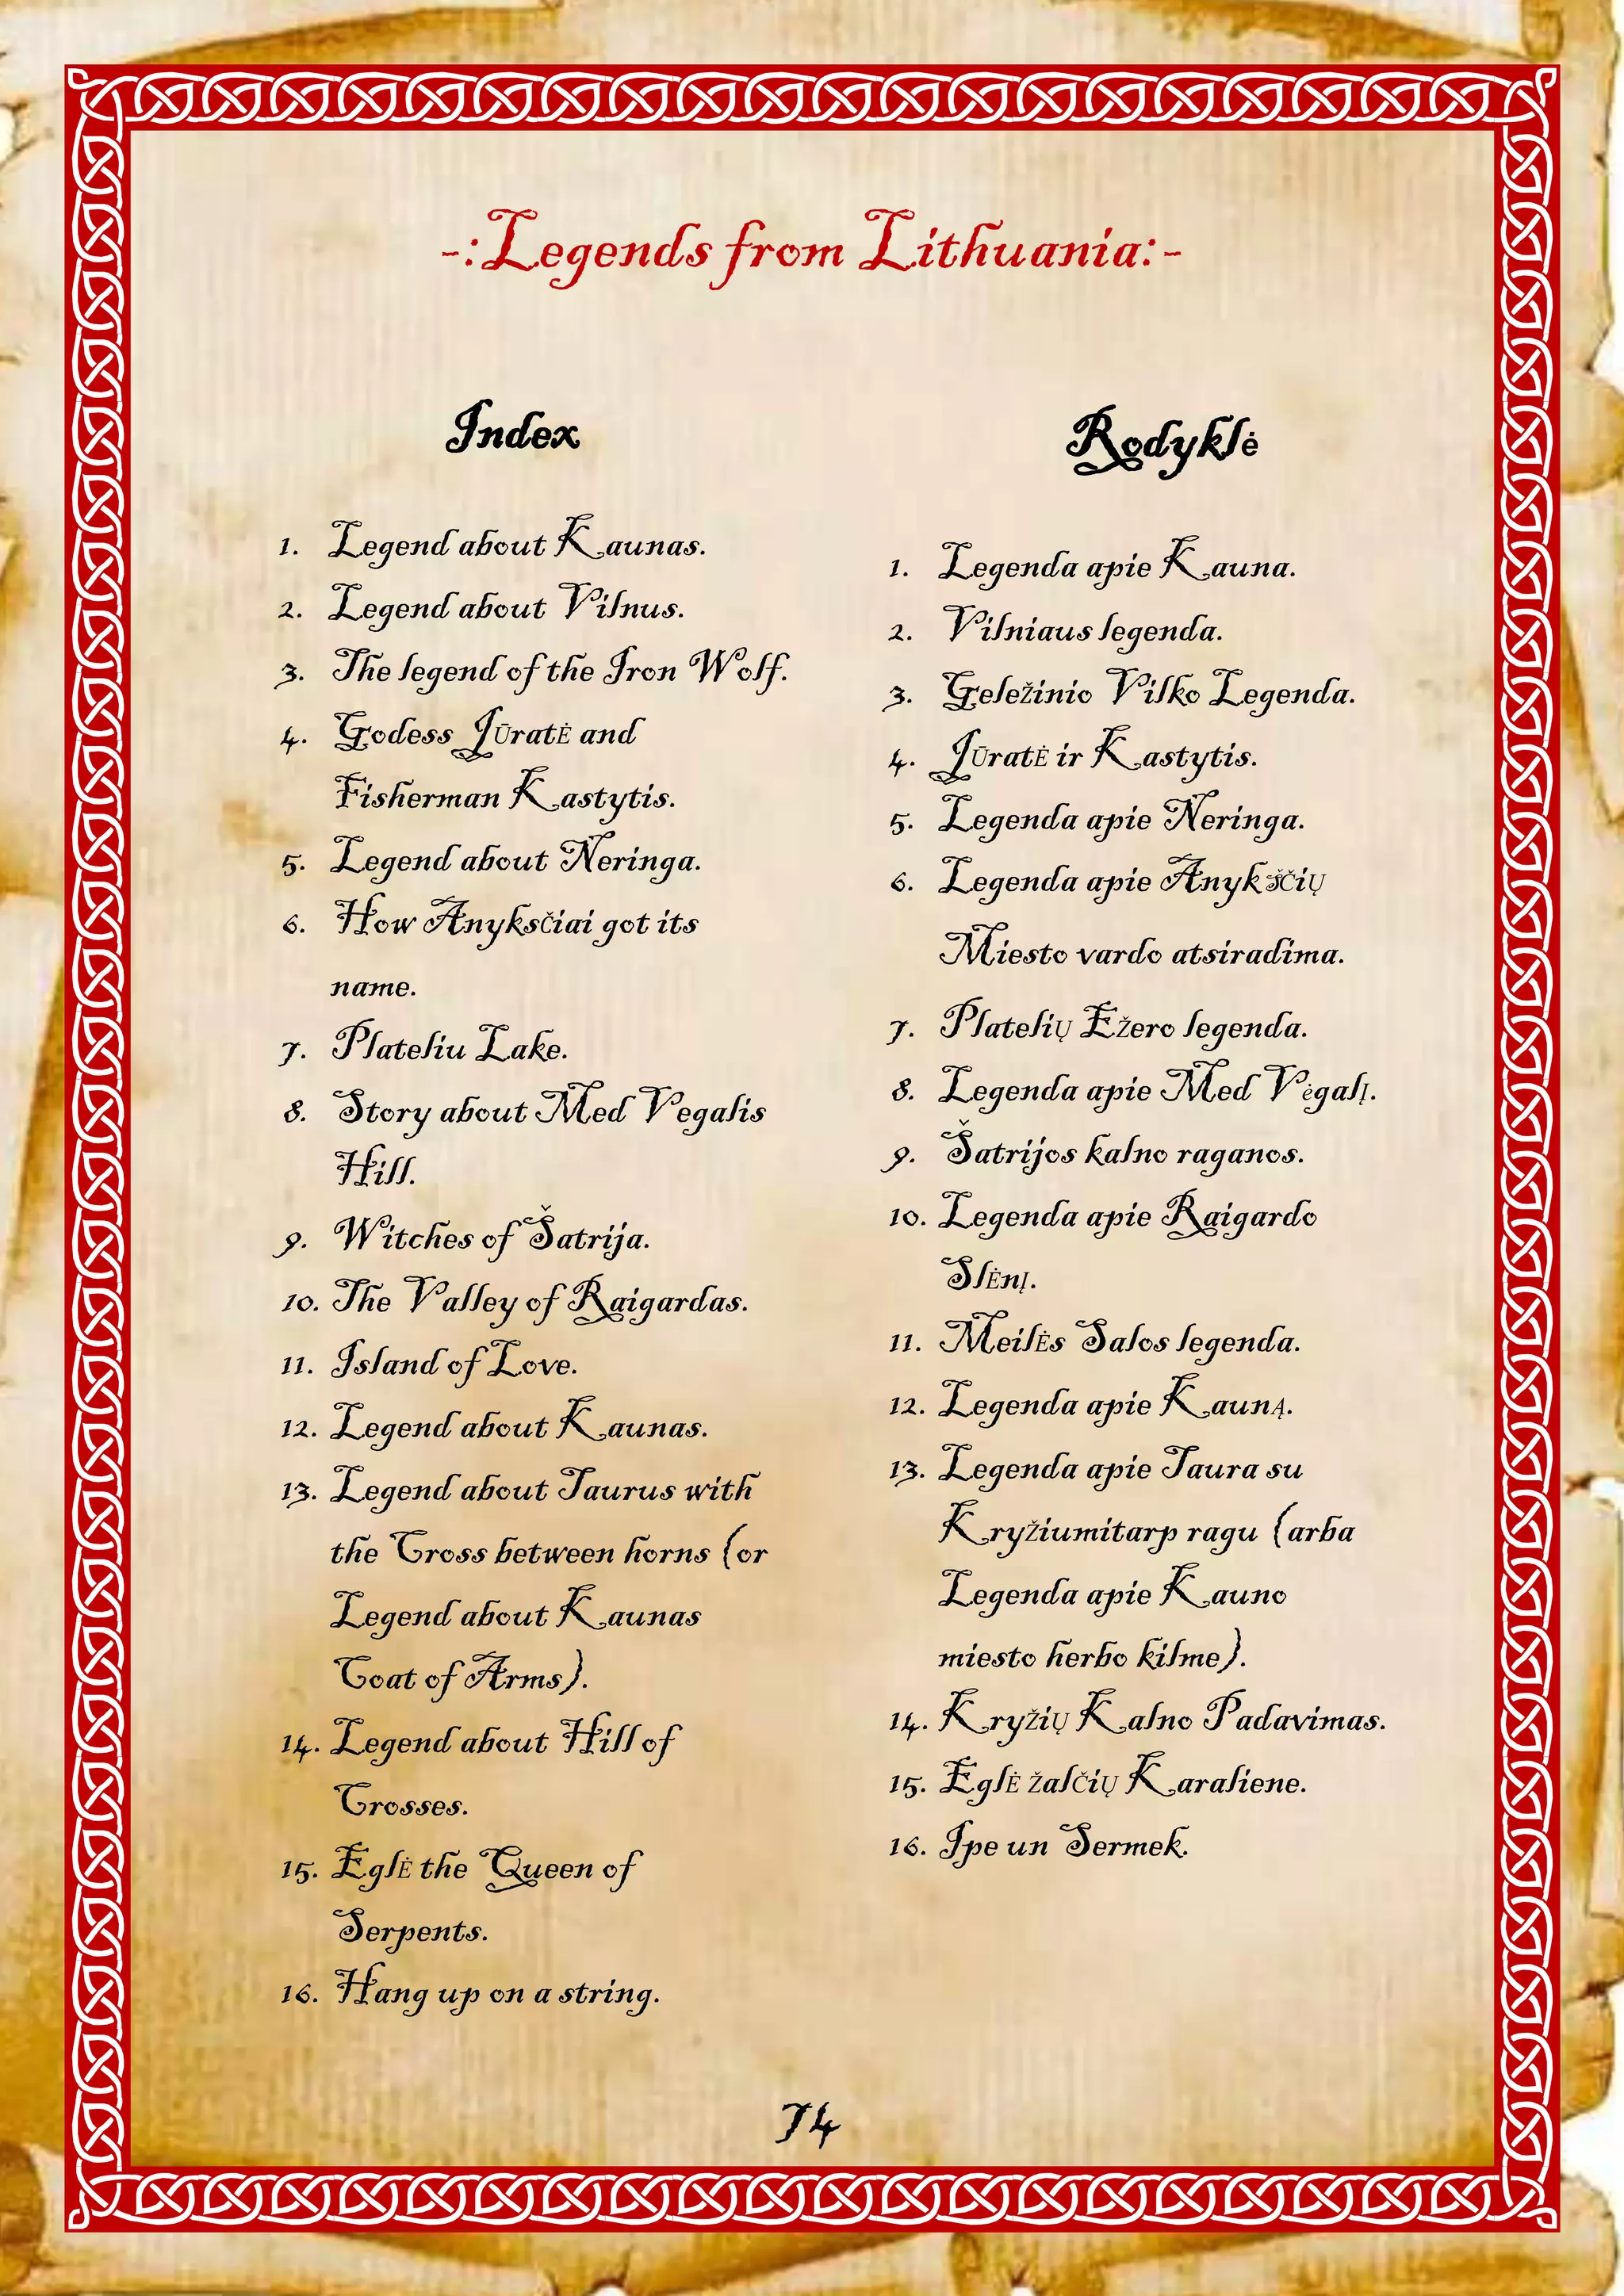 -:Legends from Lithuania:-
Index
1. Legend about Kaunas.
2. Legend about Vilnus.
3. The legend of the Iron Wolf.
4. Godess JŪratĖ and
Fisherman Kastytis.
5. Legend about Neringa.
6. How AnyksČiai got its
name.
7. Plateliu Lake.
8. Story about Med Vegalis
Hill.
9. Witches of Šatrija.
10. The Valley of Raigardas.
11. Island of Love.
12. Legend about Kaunas.
13. Legend about Taurus with
the Cross between horns (or
Legend about Kaunas
Coat of Arms).
14. Legend about Hill of
Crosses.
15. EglĖ the Queen of
Serpents.
16. Hang up on a string.
Rodyklė
1. Legenda apie Kauna.
2. Vilniaus legenda.
3. Geležinio Vilko Legenda.
4. JŪratĖ ir Kastytis.
5. Legenda apie Neringa.
6. Legenda apie AnykŠČiŲ
Miesto vardo atsiradima.
7. PlateliŲ EŽero legenda.
8. Legenda apie Med VėgalĮ.
9. Šatrijos kalno raganos.
10. Legenda apie Raigardo
SlĖnĮ.
11. MeilĖs Salos legenda.
12. Legenda apie KaunĄ.
13. Legenda apie Taura su
KryŽiumitarp ragu (arba
Legenda apie Kauno
miesto herbo kilme).
14. KryŽiŲ Kalno Padavimas.
15. EglĖ ŽalČiŲ Karaliene.
16. Ipe un Sermek.
74